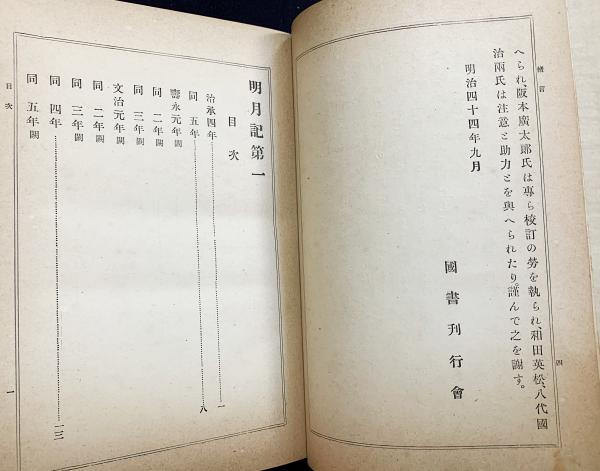 緒言
四
へられ、阪本廣太郎氏は專ら校訂の勞を執られ、和田英松、八代國
治兩氏は注意と助力とを與へられたり。謹んで之を謝す。
明治四十四年九月
國書刊行會
明月記第一
目次
治承四年……一
同五年……八
壽永元年闕
同二年闕
同三年闕
文治元年闕
同二年闕
同三年闕
同四年……一三
同五年闕
目次
一